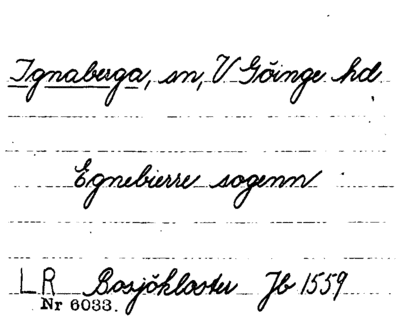 Ignaberga, sn, V Göinge hd
Egnebierre sogenn
LR Bosjökloster Jb 1559
Nr 6033.